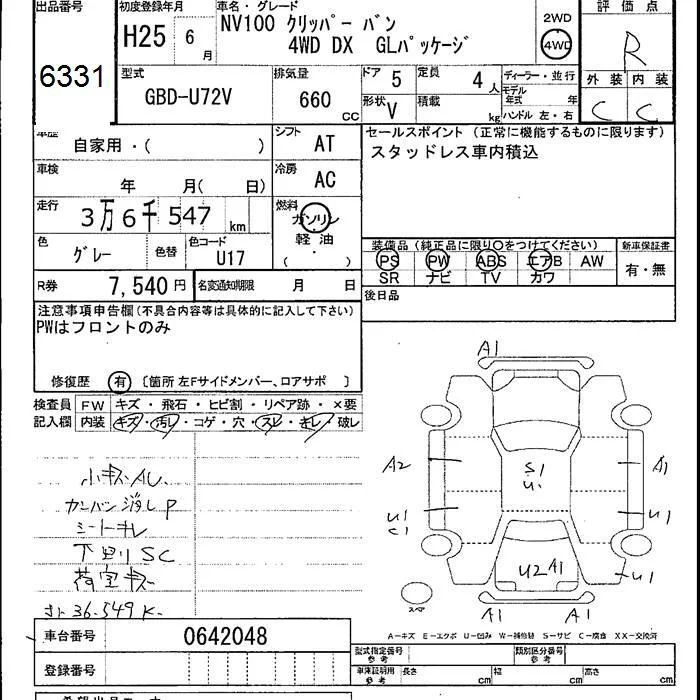 出品番号
6331
初度登録年月
H25 6月
車名・グレード
NV100 クリッパー バン
4WD DX GLパッケージ
2WD
4WD
評価点
R
外装 内装
C C
型式
GBD-U72V
排気量
660 CC
ドア 5
定員 4人
形状 V
積載 kg
ディーラー・並行
モデル年式 年
ハンドル 左・右
車歴
自家用・( )
シフト AT
車検
年 月( 日)
冷房 AC
走行
3万6千547 km
燃料
ガソリン
軽油
( ・ )
色
グレー
色替
色コード
U17
R券 7,540円
名変通知期限 月 日
セールスポイント(正常に機能するものに限ります)
スタッドレス車内積込
装備品(純正品に限り○をつけてください)
PS PW ABS エアB AW
SR ナビ TV カワ
新車保証書
有・無
後日品
注意事項申告欄(不具合内容等は具体的に記入して下さい)
PWはフロントのみ
修復歴 有 〔箇所 左Fサイドメンバー、ロアサポ 〕
検査員 FW キズ・飛石・ヒビ割・リペア跡・×要
記入欄 内装 キズ・汚レ・コゲ・穴・スレ・キレ・破レ
小キズAU
カンバン消しP
シートキレ
下廻りSC
荷室キズ
36.549K
A1
A2
S1
U.
A1
U1
C1
U1
U2 A1
U1
スペア
A1 A1
A-キズ E-エクボ U-凹み W-補修跡 S-サビ C-腐食 XX-交換済
車台番号 0642048
登録番号
型式指定番号
参考
類別区分番号
参考
車庫証明用
参考
長さ cm
幅 cm
高さ cm